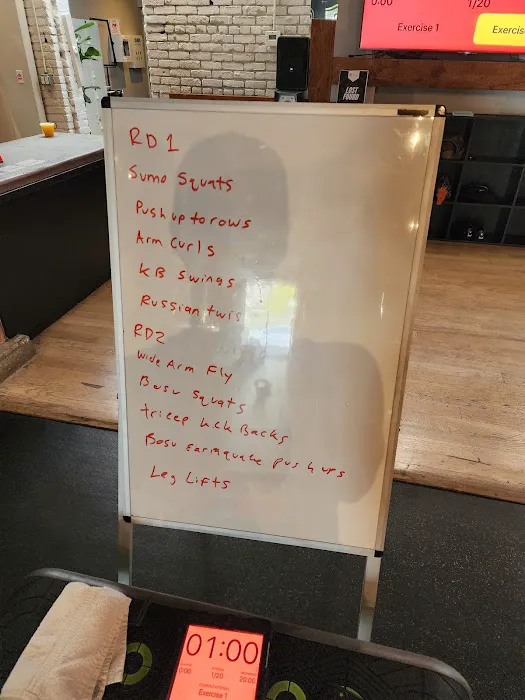 0:00
1/20
Exercise 1
Exercis
LOST
FOUND
RD 1
Sumo Squats
Push up to rows
Arm Curls
KB Swings
Russian twis
RD2
Wide Arm Fly
Bosu Squats
tricep kck Backs
Bosu Earthquake push ups
Leg Lifts
01:00
1/20
20:00
Exercise 1